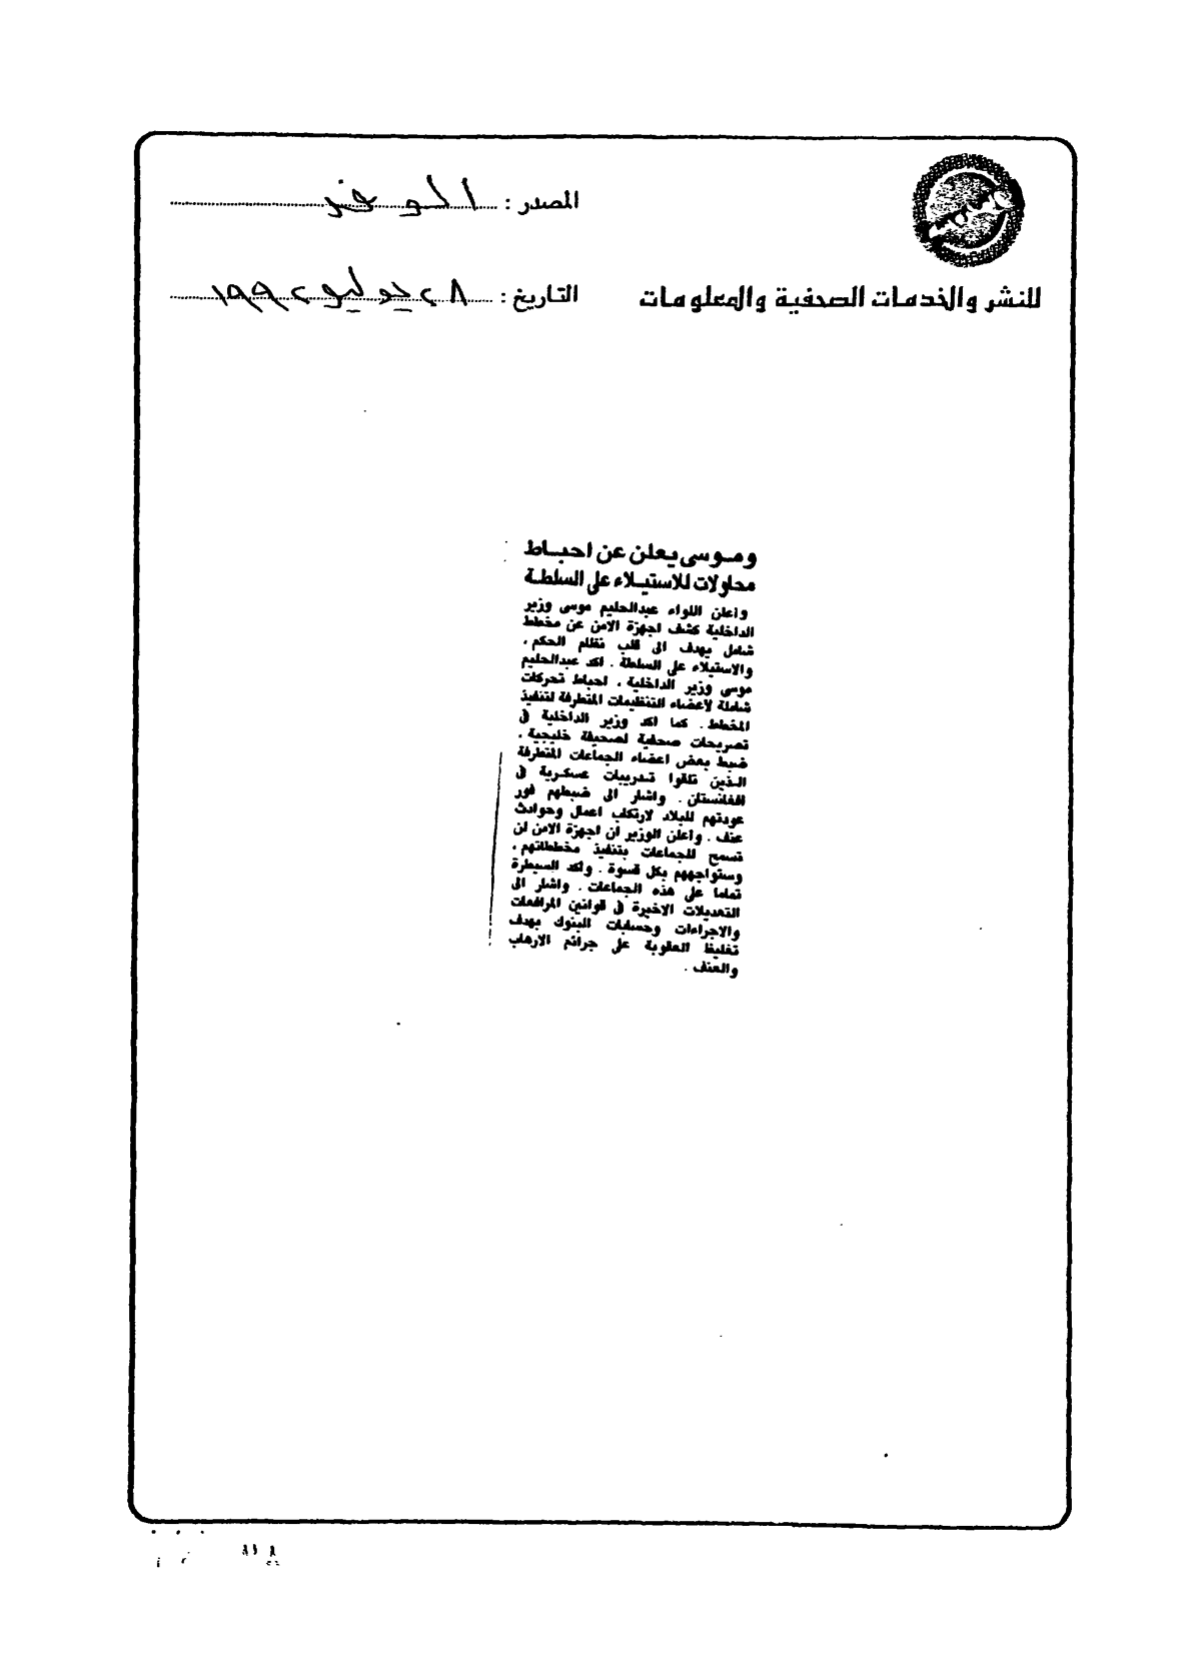 المصدر : الوفد
للنشر والخدمات الصحفية والمعلومات
التاريخ : ٢٨ يوليو ١٩٩٢
وموسى يعلن عن احباط
محاولات للاستيلاء على السلطة
واعلن اللواء عبدالحليم موسى وزير
الداخلية كشف اجهزة الامن عن مخطط
شامل يهدف الى قلب نظام الحكم ،
والاستيلاء على السلطة . اكد عبدالحليم
موسى وزير الداخلية ، احباط تحركات
شاملة لاعضاء التنظيمات المتطرفة لتنفيذ
المخطط . كما اكد وزير الداخلية في
تصريحات صحفية لصحيفة خليجية ،
ضبط بعض اعضاء الجماعات المتطرفة
الذين تلقوا تدريبات عسكرية في
افغانستان . واشار الى ضبطهم فور
عودتهم للبلاد لارتكاب اعمال وحوادث
عنف . واعلن الوزير ان اجهزة الامن لن
تسمح للجماعات بتنفيذ مخططاتهم ،
وستواجههم بكل قسوة . واكد السيطرة
تماما على هذه الجماعات . واشار الى
التعديلات الاخيرة في قوانين المرافعات
والاجراءات وحسابات البنوك بهدف
تغليظ العقوبة على جرائم الارهاب
والعنف .